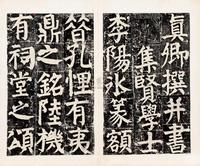 真卿撰并書
集賢學士
李陽冰篆額
昔孔悝有夷
鼎之銘陸機
有祠堂之頌